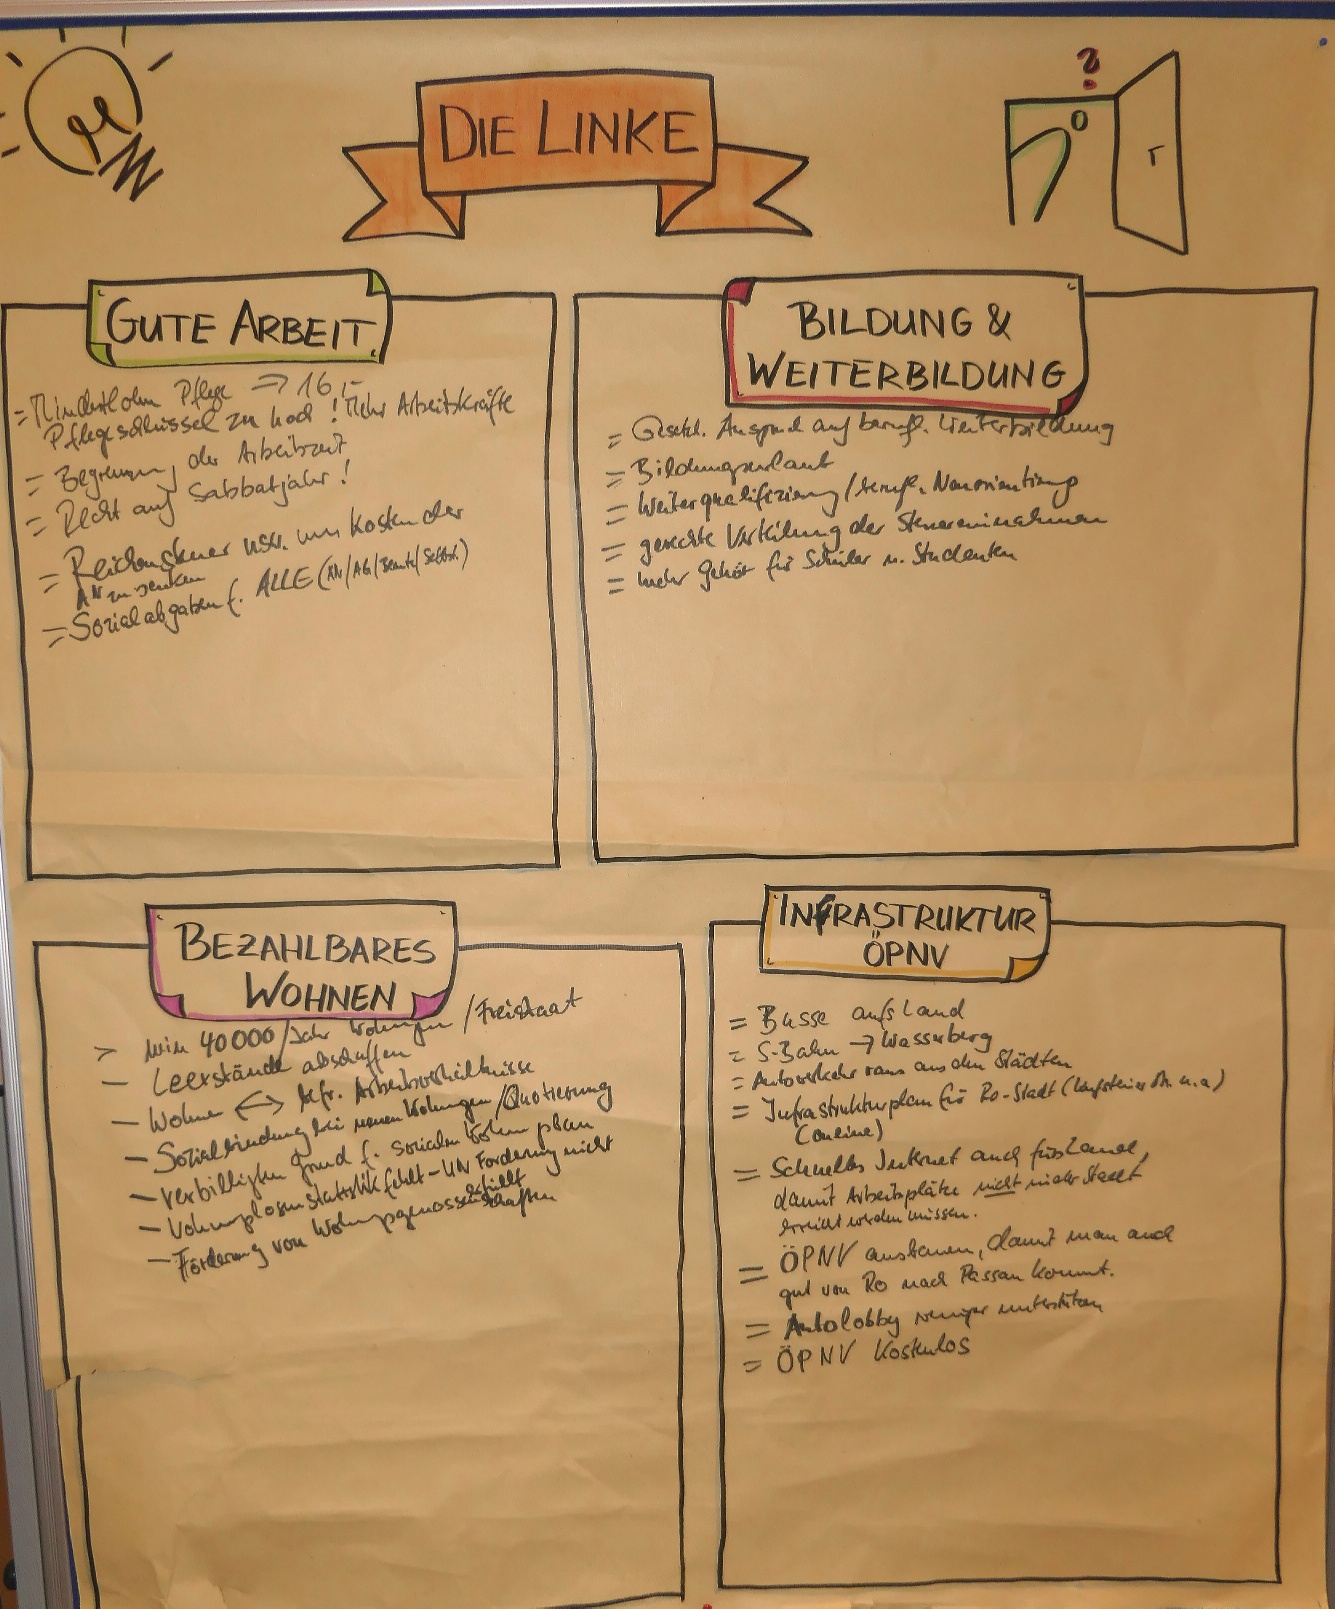 DIE LINKE
?
GUTE ARBEIT
= Mindestlohn Pflege => 16,-
Pflegeschlüssel zu hoch! Mehr Arbeitskräfte
= Begrenzung der Arbeitszeit
= Recht auf Sabbatjahr!
= Reichensteuer usw. um Kosten der
AN zu senken
= Sozialabgaben f. ALLE (AN/AG/Beamte/Selbst.)
BILDUNG &
WEITERBILDUNG
= Gesetzl. Anspruch auf berufl. Weiterbildung
= Bildungsurlaub
= Weiterqualifizierung/berufl. Neuorientierung
= gerechte Verteilung der Steuereinnahmen
= mehr Gehör für Schüler u. Studenten
BEZAHLBARES
WOHNEN
> 40000/Jahr Wohnungen/Freistaat
- Leerstände abschaffen
- Wohnen <-> Arbeitsverhältnisse
- Sozialbindung bei neuen Wohnungen/Quotierung
- verbilligten Grund f. sozialen
- Wohnungslosenstatistik fehlt - UN Forderung nicht
erfüllt
- Förderung von Wohngenossenschaften
INFRASTRUKTUR
ÖPNV
= Busse aufs Land
= S-Bahn -> Wasserburg
= Autoverkehr raus aus den Städten
= Infrastrukturplan für Ro-Stadt (Kufsteiner Str. u.a)
(online)
= Schnelles Internet auch fürs Land,
damit Arbeitsplätze nicht in der Stadt
erreicht werden müssen.
= ÖPNV ausbauen, damit man auch
gut von Ro nach Passau kommt.
= Autolobby weniger unterstützen
= ÖPNV Kostenlos